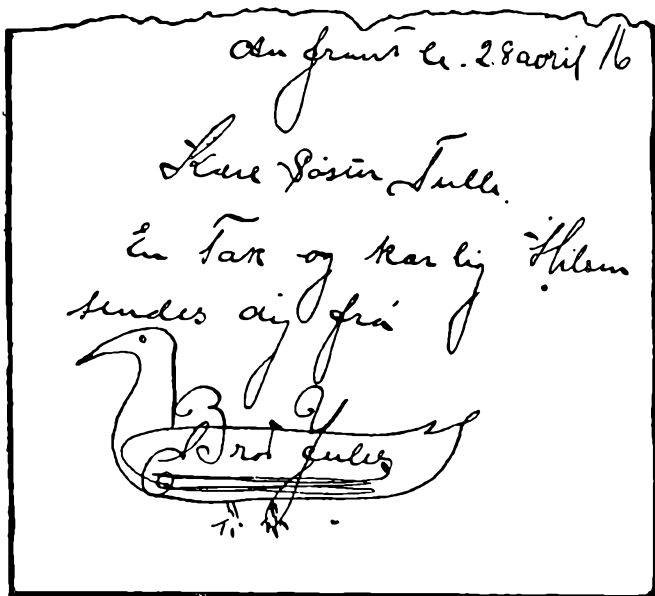 Au front le. 28 avril 16
Kære Søster Tulle.
En Tak og kærlig Hilsen
sendes dig fra
Bror Jules